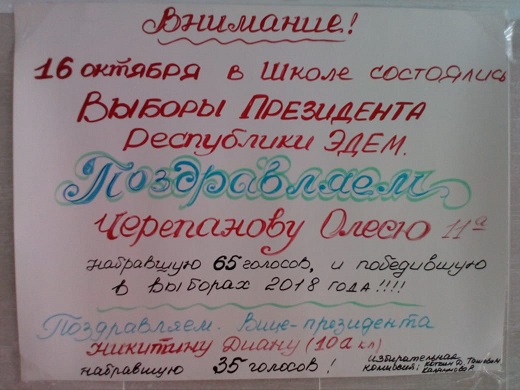 Внимание!
16 октября в Школе состоялись
Выборы Президента
Республики ЭДЕМ.
Поздравляем
Черепанову Олесю 11а
набравшую 65 голосов, и победившую
в выборах 2018 года!!!!
Поздравляем. Вице-президента
Никитину Диану (10а кл)
набравшую 35 голосов!
избирательная
комиссия: